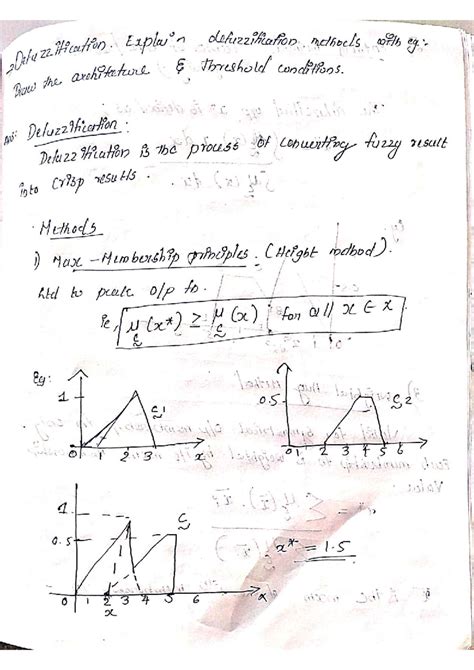 Defuzzification. Explain defuzzification methods with eg:-
Draw the architeture & threshold conditions.
Ans: Defuzzification:
Defuzzification is the process of converting fuzzy result
into crisp results.
Methods
1) Max-Membership principles. (Height method).
ltd to peak o/p fn.
ie, μ_C̰(x*) ≥ μ_C̰(x) for all x ∈ X.
Eg:
1
C̰1
0 1 2 3 x
0.5
C̰2
0 1 2 3 4 5 6
1
C̰
0.5
x* = 1.5
0 1 2 3 4 5 6 x
x